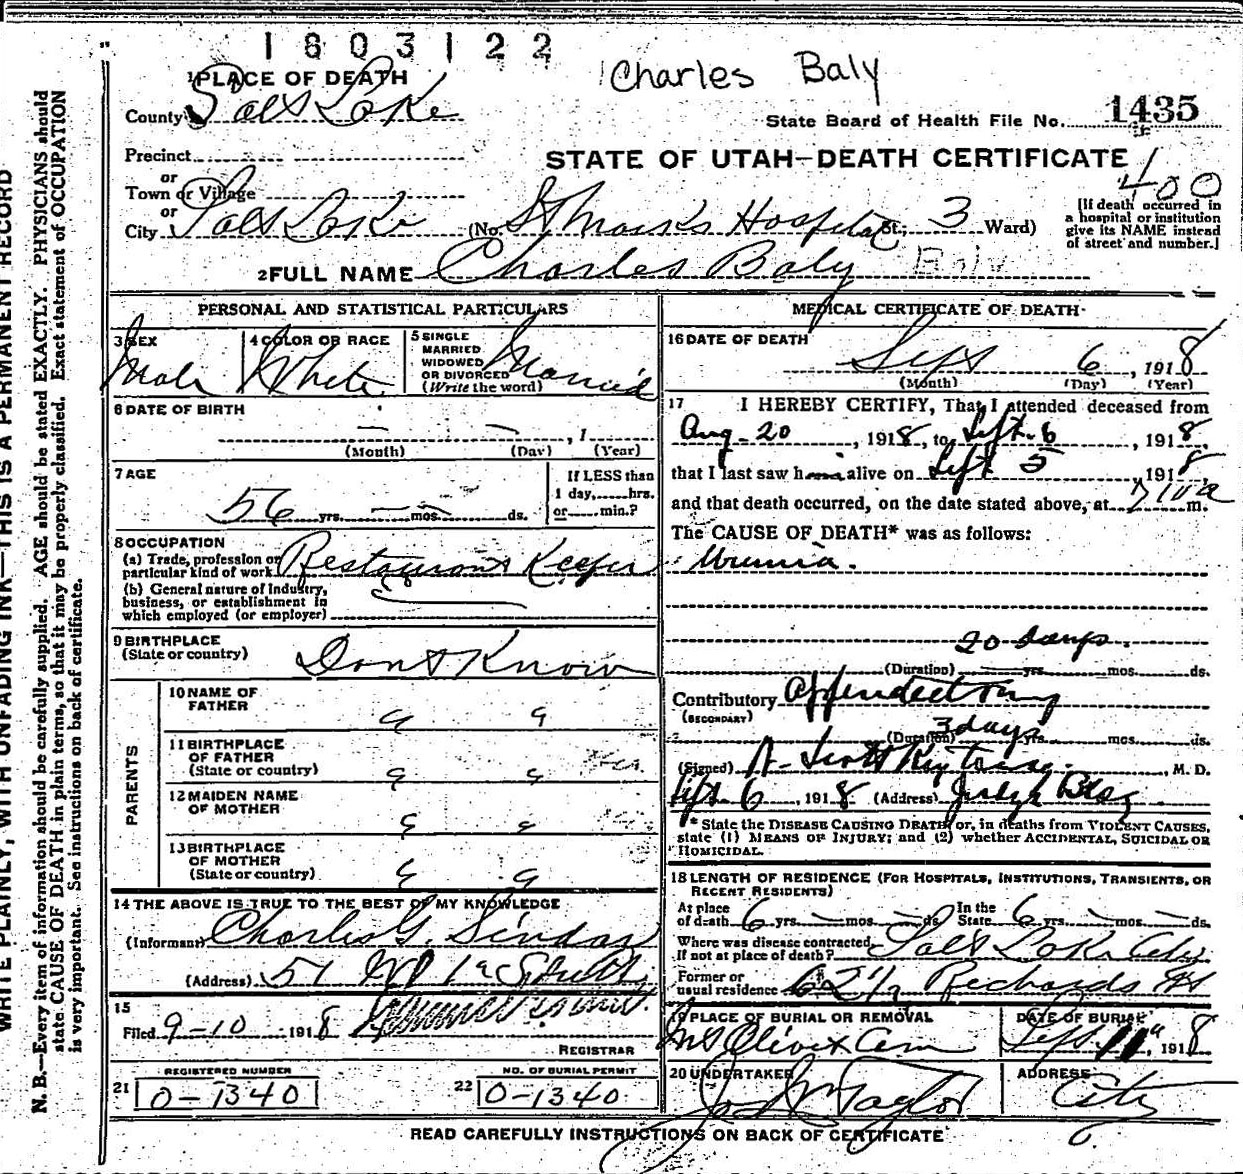 1803122
Charles Baly
1 PLACE OF DEATH
County Salt Lake
State Board of Health File No. 1435
Precinct
STATE OF UTAH—DEATH CERTIFICATE
400
or
Town or Village
or
City Salt Lake (No. St Marks Hospital St.; 3 Ward)
[If death occurred in
a hospital or institution
give its NAME instead
of street and number.]
2 FULL NAME Charles Baly
PERSONAL AND STATISTICAL PARTICULARS
3 SEX
Male
4 COLOR OR RACE
White
5 SINGLE
MARRIED
WIDOWED
OR DIVORCED
(Write the word)
Married
6 DATE OF BIRTH
— — , 1
(Month) (Day) (Year)
7 AGE
56 yrs. — mos. — ds.
If LESS than
1 day, hrs.
or min.?
8 OCCUPATION
(a) Trade, profession or
particular kind of work Restaurant Keeper
(b) General nature of industry,
business, or establishment in
which employed (or employer)
9 BIRTHPLACE
(State or country) Dont Know
PARENTS
10 NAME OF
FATHER
11 BIRTHPLACE
OF FATHER
(State or country)
12 MAIDEN NAME
OF MOTHER
13 BIRTHPLACE
OF MOTHER
(State or country)
14 THE ABOVE IS TRUE TO THE BEST OF MY KNOWLEDGE
(Informant) Charles G.
(Address) 51
15
Filed 9-10 1918
REGISTRAR
REGISTERED NUMBER
21 0-1340
NO. OF BURIAL PERMIT
22 0-1340
MEDICAL CERTIFICATE OF DEATH
16 DATE OF DEATH
Sept 6, 1918
(Month) (Day) (Year)
17 I HEREBY CERTIFY, That I attended deceased from
Aug-20, 1918, to Sept. 6, 1918,
that I last saw him alive on Sept 5 1918
and that death occurred, on the date stated above, at m.
The CAUSE OF DEATH* was as follows:
Uremia.
20 days.
(Duration) yrs. mos. ds.
Contributory Appendectomy
(SECONDARY)
3 days
(Duration) yrs. mos. ds.
(Signed) , M. D.
Sept. 6, 1918 (Address) Judge Bldg.
* State the DISEASE CAUSING DEATH, or, in deaths from VIOLENT CAUSES,
state (1) MEANS OF INJURY; and (2) whether ACCIDENTAL, SUICIDAL OR
HOMICIDAL.
18 LENGTH OF RESIDENCE (FOR HOSPITALS, INSTITUTIONS, TRANSIENTS, OR
RECENT RESIDENTS)
At place
of death 6 yrs. — mos. — ds. In the
State 6 yrs. — mos. — ds.
Where was disease contracted
If not at place of death? Salt Lake City
Former or
usual residence 62½ Richards St
19 PLACE OF BURIAL OR REMOVAL
Mt Olivet Cem
DATE OF BURIAL
Sept. 11, 1918
20 UNDERTAKER
Taylor
ADDRESS
City
READ CAREFULLY INSTRUCTIONS ON BACK OF CERTIFICATE
WRITE PLAINLY, WITH UNFADING INK—THIS IS A PERMANENT RECORD
N. B.—Every item of information should be carefully supplied. AGE should be stated EXACTLY. PHYSICIANS should
state CAUSE OF DEATH in plain terms, so that it may be properly classified. Exact statement of OCCUPATION
is very important. See instructions on back of certificate.